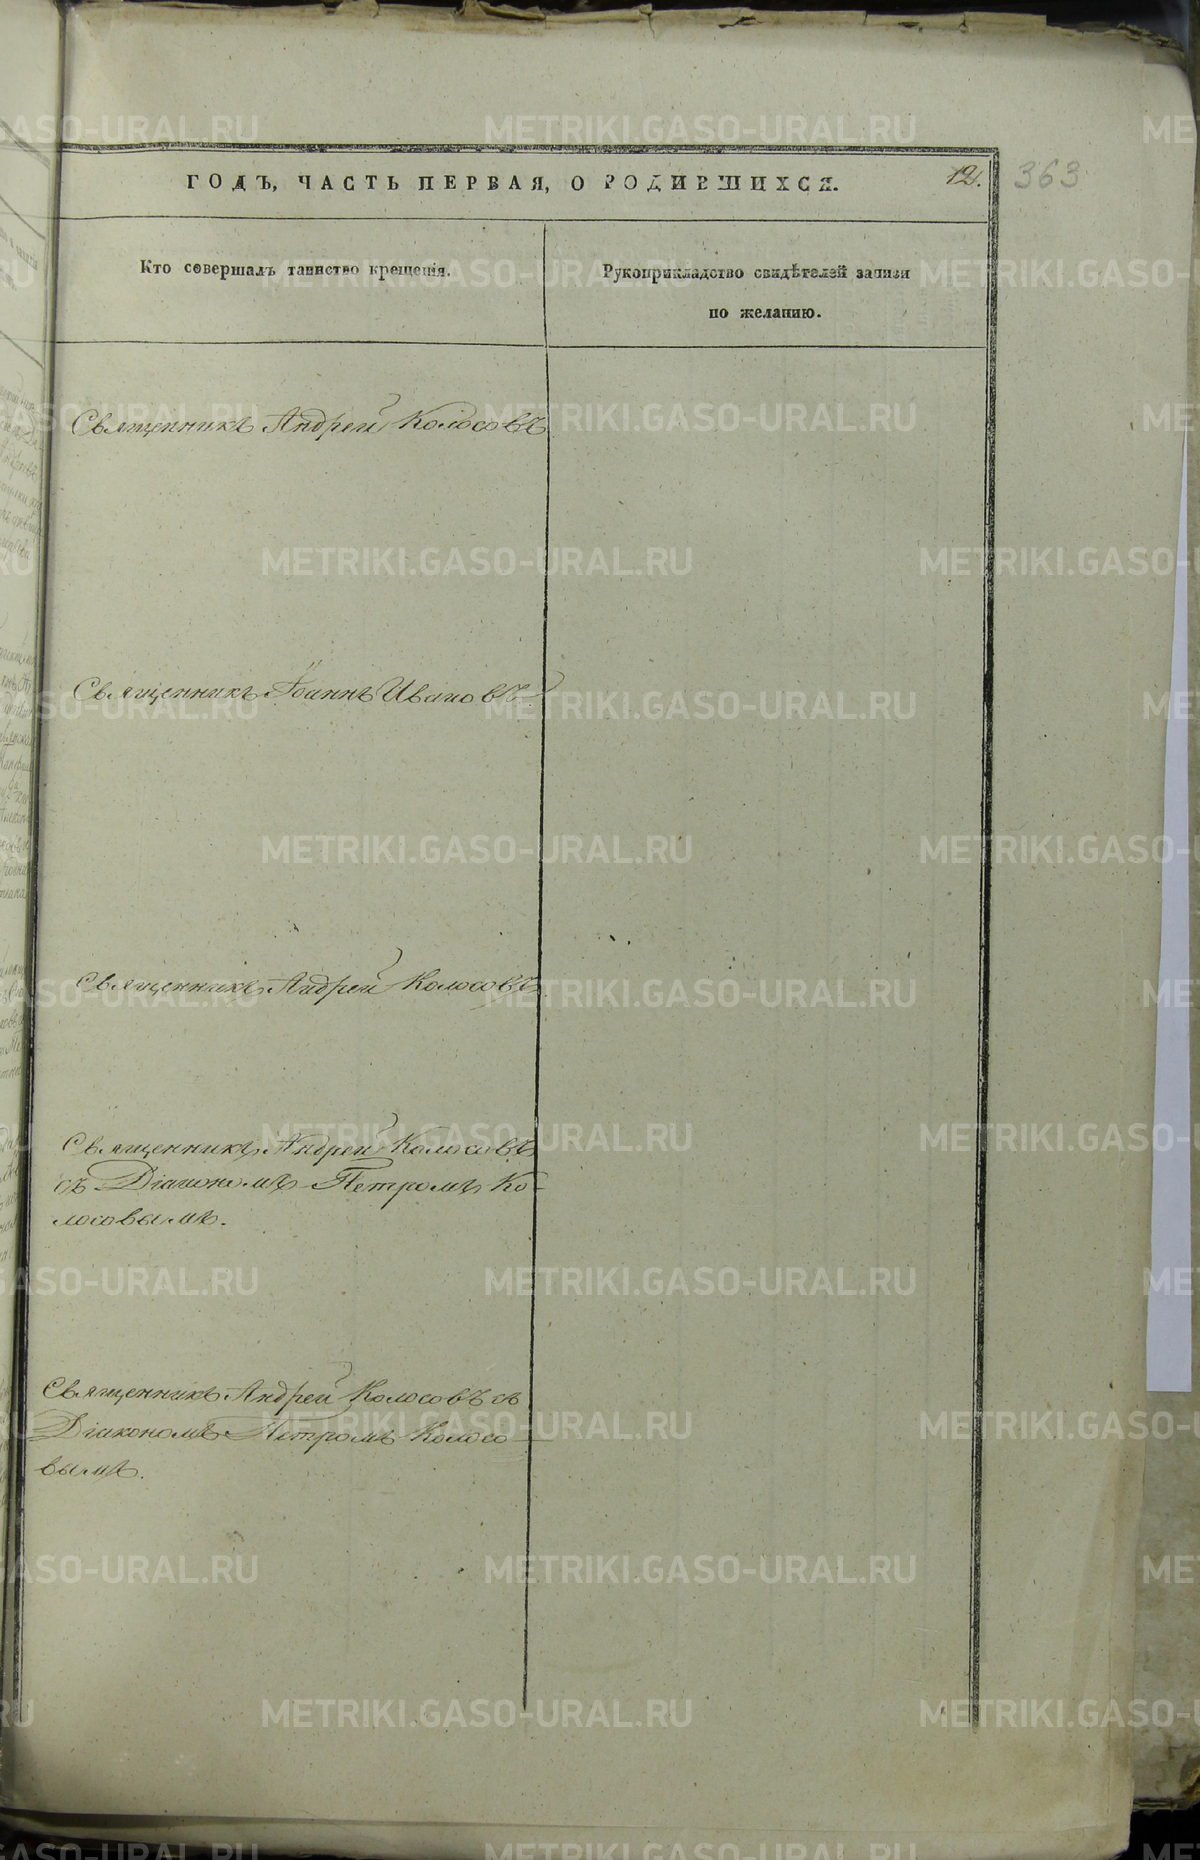 ГОДЪ, ЧАСТЬ ПЕРВАЯ, О РОДИВШИХСЯ.
12.
363
Кто совершалъ таинство крещенія.
Рукоприкладство свидѣтелей записи
по желанію.
Священникъ Андрей Колосовъ
Священникъ Іоаннъ Ивановъ
Священникъ Андрей Колосовъ
Священникъ Андрей Колосовъ
съ Діакономъ Петромъ Ко-
лосовымъ.
Священникъ Андрей Колосовъ съ
Діакономъ Петромъ Колосо
вымъ.
METRIKI.GASO-URAL.RU